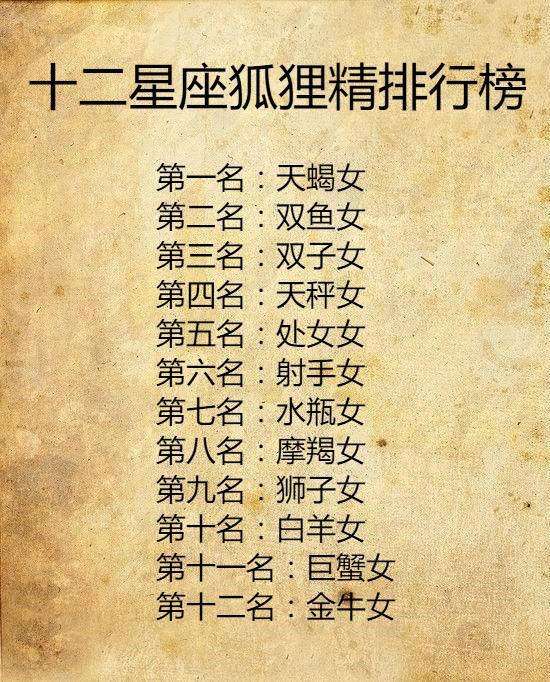 十二星座狐狸精排行榜
第一名：天蝎女
第二名：双鱼女
第三名：双子女
第四名：天秤女
第五名：处女女
第六名：射手女
第七名：水瓶女
第八名：摩羯女
第九名：狮子女
第十名：白羊女
第十一名：巨蟹女
第十二名：金牛女